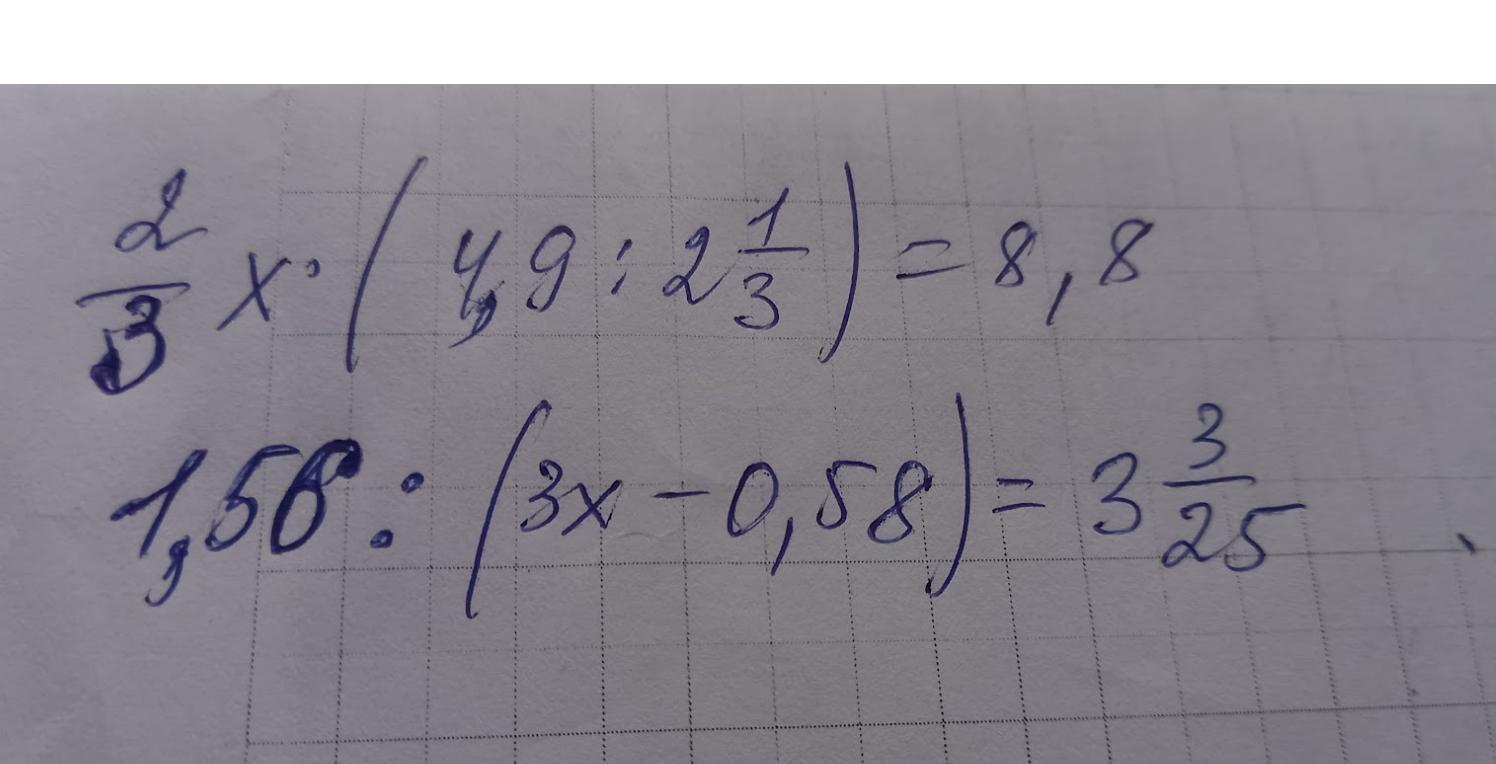 2/3 x · (4,9 : 2 1/3) = 8,8
1,56 : (3x - 0,58) = 3 3/25